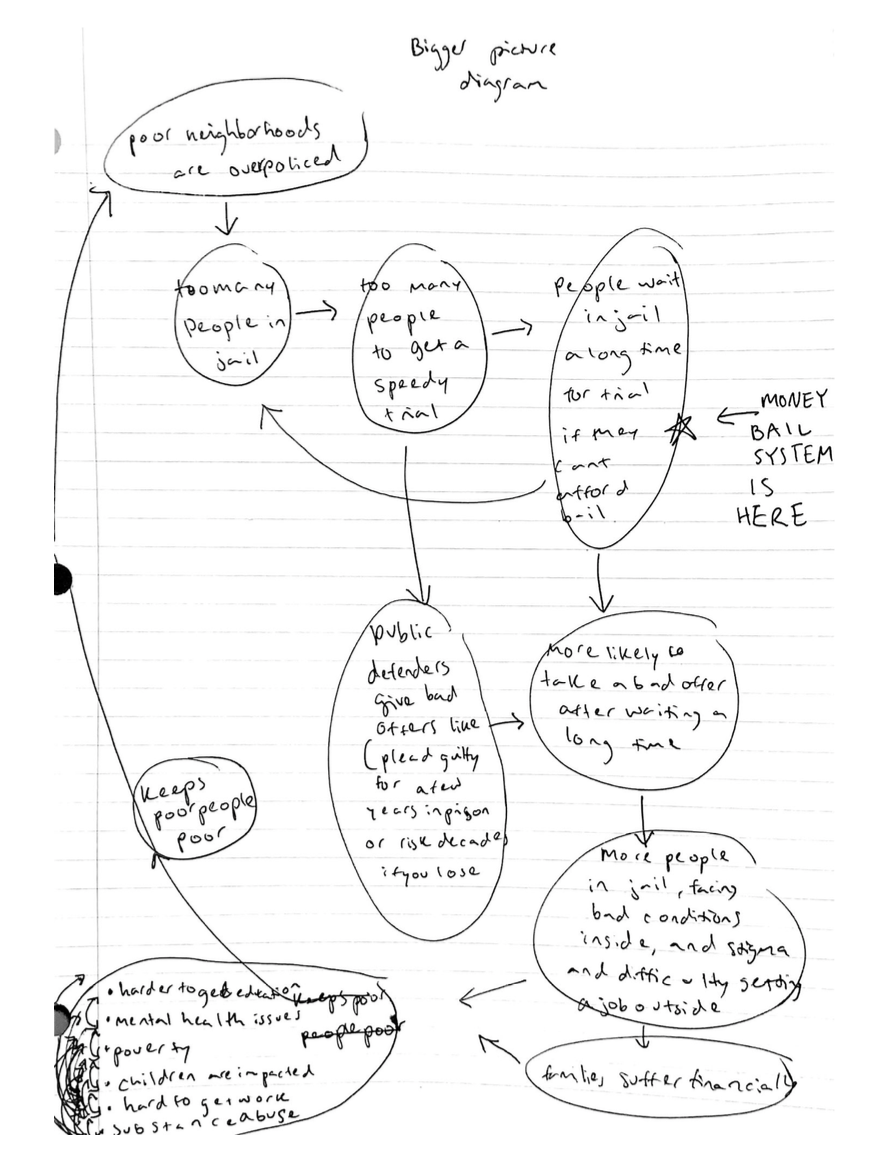 Bigger picture
diagram
poor neighborhoods
are overpoliced
too many
people in
jail
too many
people
to get a
speedy
trial
people wait
in jail
a long time
for trial
if they
cant
afford
bail
MONEY
BAIL
SYSTEM
IS
HERE
public
defenders
give bad
offers like
(plead guilty
for a few
years in prison
or risk decades
if you lose
More likely to
take a bad offer
after waiting a
long time
Keeps
poor people
poor
More people
in jail, facing
bad conditions
inside, and stigma
and difficulty getting
a job outside
families suffer financially
• harder to get education
keeps poor
people poor
• mental health issues
• poverty
• children are impacted
• hard to get work
substance abuse